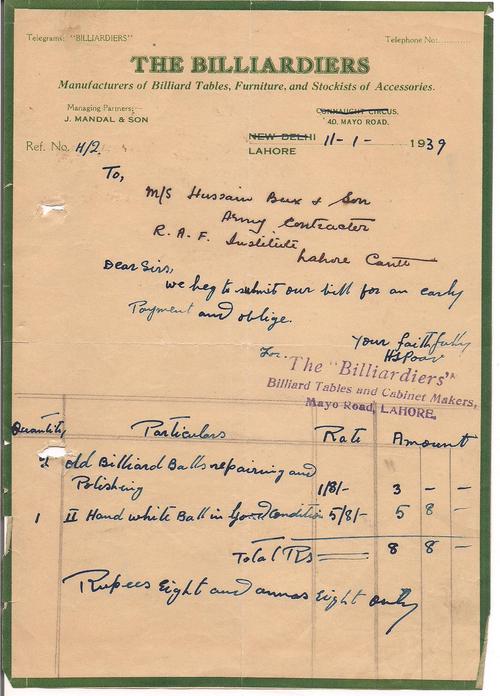 Telegrams: "BILLIARDIERS" Telephone No:............
THE BILLIARDIERS
Manufacturers of Billiard Tables, Furniture, and Stockists of Accessories.
Managing Partners;— CONNAUGHT CIRCUS,
J. MANDAL & SON 40, MAYO ROAD,
Ref. No. H/2 NEW DELHI 11-1- 1939
LAHORE
To,
M/S Hussain Bux & Son
Army Contractor
R. A. F. Institute
Lahore Cantt
Dear Sirs,
we beg to submit our bill for an early
Payment and oblige.
Your faithfully
For.
The "Billiardiers"
Billiard Tables and Cabinet Makers,
Mayo Road, LAHORE.
Quantity Particulars Rate Amount
2 old Billiard Balls repairing and
Polishing 1/8/- 3 - -
1 II Hand white Ball in Good Condition 5/8/- 5 8 -
Total Rs 8 8 -
Rupees Eight and annas Eight only